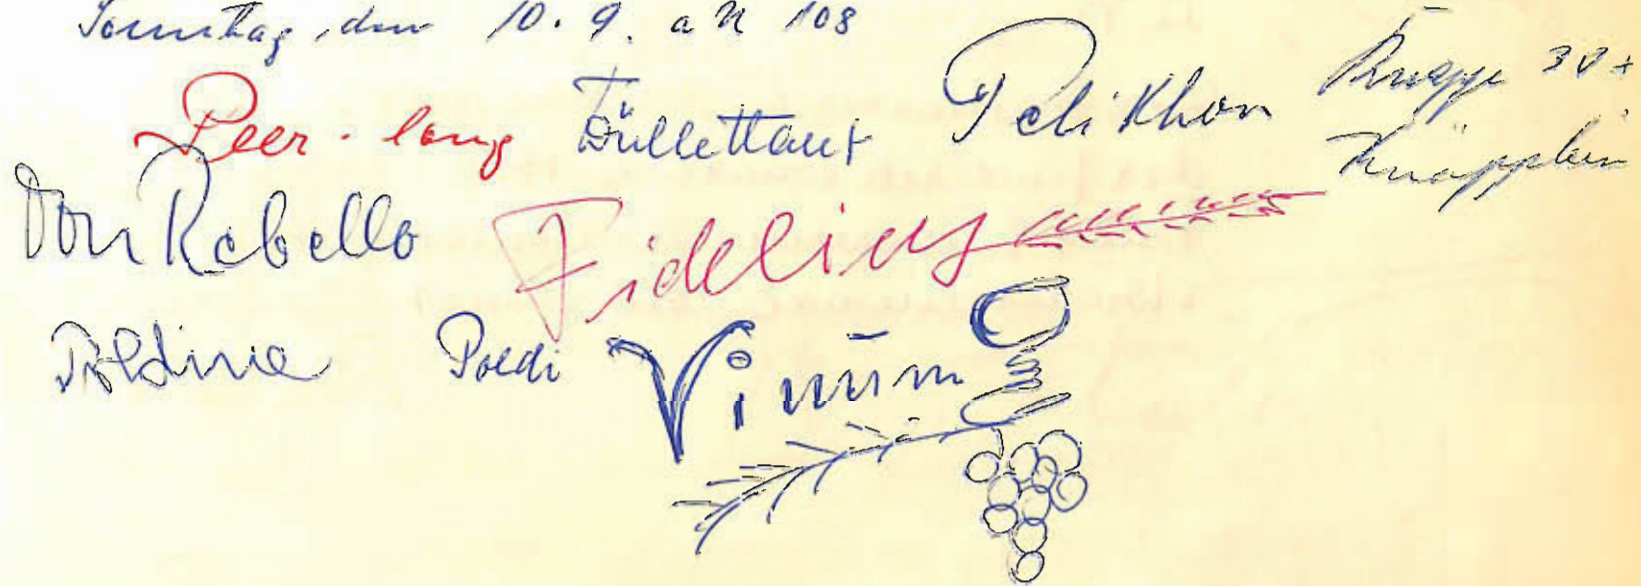 Sonntag, den 10. 9. a U 108
Peer-long Düllettant Pelikhon Knappe 30 +
Knäpplein
Don Rebello Fidelius
Poldine Poldi Vinum